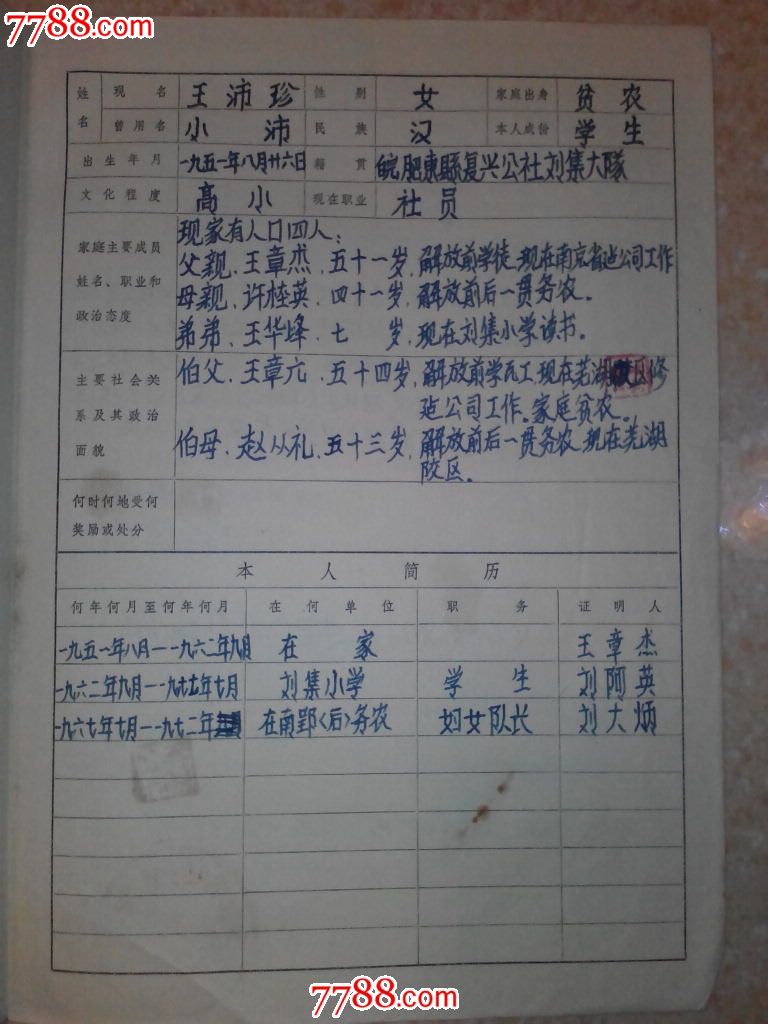 7788.com
7788.com
姓名 现名 王沛珍 性别 女 家庭出身 贫农
曾用名 小沛 民族 汉 本人成份 学生
出生年月 一九五一年八月廿六日 籍贯 皖肥東縣复兴公社刘集大隊
文化程度 高小 现在职业 社员
家庭主要成员姓名、职业和政治态度
现家有人口四人:
父亲、王章杰,五十一岁,解放前学徒,现在南京省迠公司工作
母亲、许桂英,四十一岁,解放前后一贯务农。
弟弟、王华峰,七岁,现在刘集小学读书。
主要社会关系及其政治面貌
伯父、王章元,五十四岁,解放前学瓦工,现在芜湖 区修
迠公司工作。家庭贫农。
伯母、赵从礼,五十三岁,解放前后一贯务农,现在芜湖
区。
何时何地受何奖励或处分
本人简历
何年何月至何年何月 在何单位 职务 证明人
一九五一年八月—一九六二年九月 在家 王章杰
一九六二年九月—一九 年七月 刘集小学 学生 刘阿英
一九六七年七月—一九七二年 在南郢〈后〉务农 妇女队长 刘大炳
7788.com